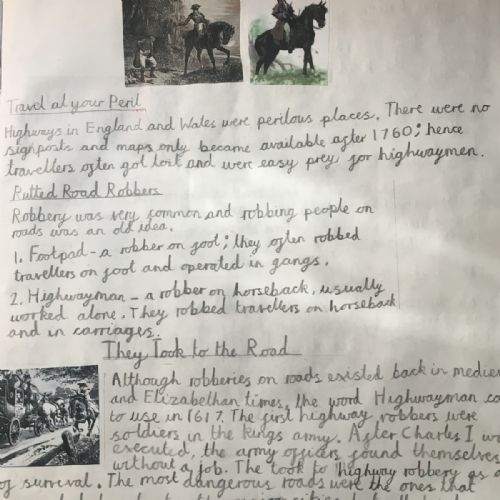 Travel at your Peril
Highways in England and Wales were perilous places. There were no
signposts and maps only became available after 1760; hence
travellers often got lost and were easy prey for highwaymen.
Rutted Road Robbers
Robbery was very common and robbing people on
roads was an old idea.
1. Footpad - a robber on foot; they often robbed
travellers on foot and operated in gangs.
2. Highwayman - a robber on horseback, usually
worked alone. They robbed travellers on horseback
and in carriages.
They Took to the Road
Although robberies on roads existed back in medie
and Elizabethan times, the word Highwayman ca
to use in 1617. The first highway robbers were
soldiers in the kings army. After Charles I wa
executed, the army officers found themselves
without a job. The took to highway robbery as a
of survival. The most dangerous roads were the ones that